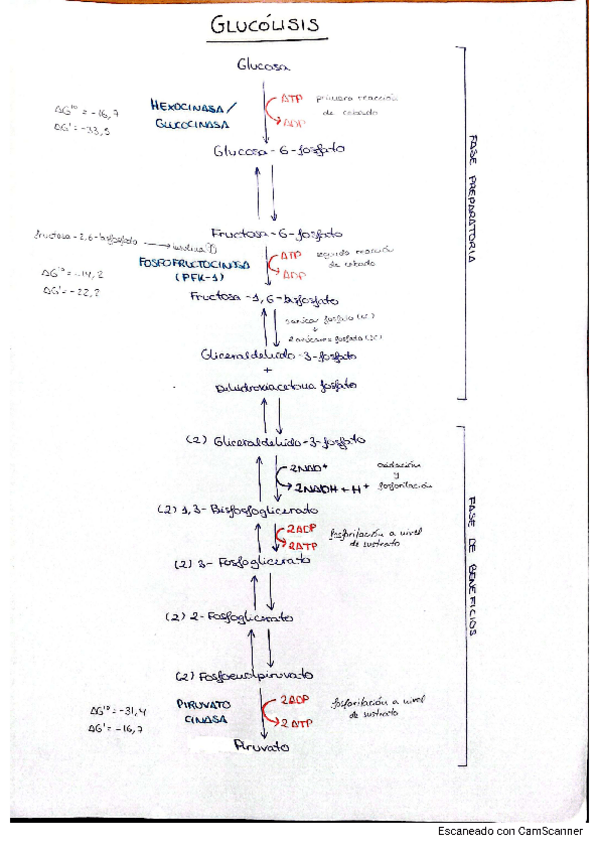 GLUCÓLISIS
Glucosa
ΔG'º = -16,7
ΔG' = -33,5
HEXOCINASA/
GLUCOCINASA
ATP
ADP
primera reacción
de cebado
Glucosa-6-fosfato
Fructosa-6-fosfato
fructosa-2,6-bisfosfato → insulina
FOSFOFRUCTOCINASA
(PFK-1)
ATP
ADP
segunda reacción
de cebado
ΔG'º = -14,2
ΔG' = -22,2
Fructosa-1,6-bisfosfato
Gliceraldehido-3-fosfato
+
Dihidroxiacetona fosfato
FASE PREPARATORIA
(2) Gliceraldehido-3-fosfato
2NAD+
2NADH + H+
oxidación
y
fosforilación
(2) 1,3-Bisfosfoglicerato
2ADP
2ATP
fosforilación a nivel
de sustrato
(2) 3-Fosfoglicerato
(2) 2-Fosfoglicerato
(2) Fosfoenolpiruvato
ΔG'º = -31,4
ΔG' = -16,7
PIRUVATO
CINASA
2ADP
2ATP
fosforilación a nivel
de sustrato
Piruvato
FASE DE BENEFICIOS
Escaneado con CamScanner